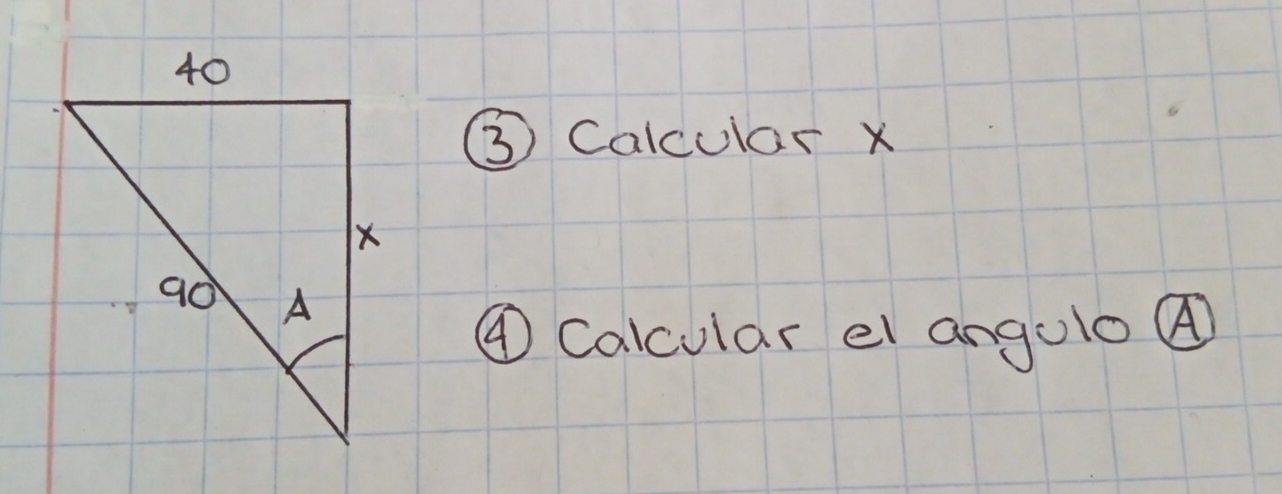 40
③ Calcular x
x
90
A
④ Calcular el angulo Ⓐ